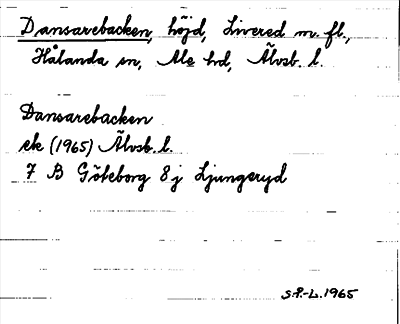 Dansarebacken, höjd, Livered m. fl.,
Hålanda sn, Ale hd, Älvsb. l.
Dansarebacken
ek (1965) Älvsb. l.
7 B Göteborg 8 j Ljungeryd
S.P.-L. 1965